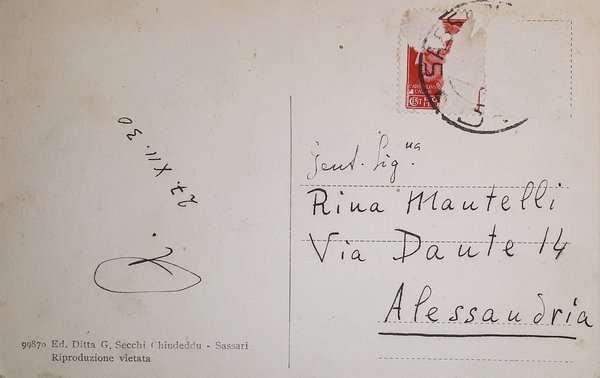 SASS
27. XII. 30
Gent. Sig.na
Rina Mantelli
Via Dante 14
Alessandria
99870 Ed. Ditta G. Secchi Chiudeddu - Sassari
Riproduzione vietata